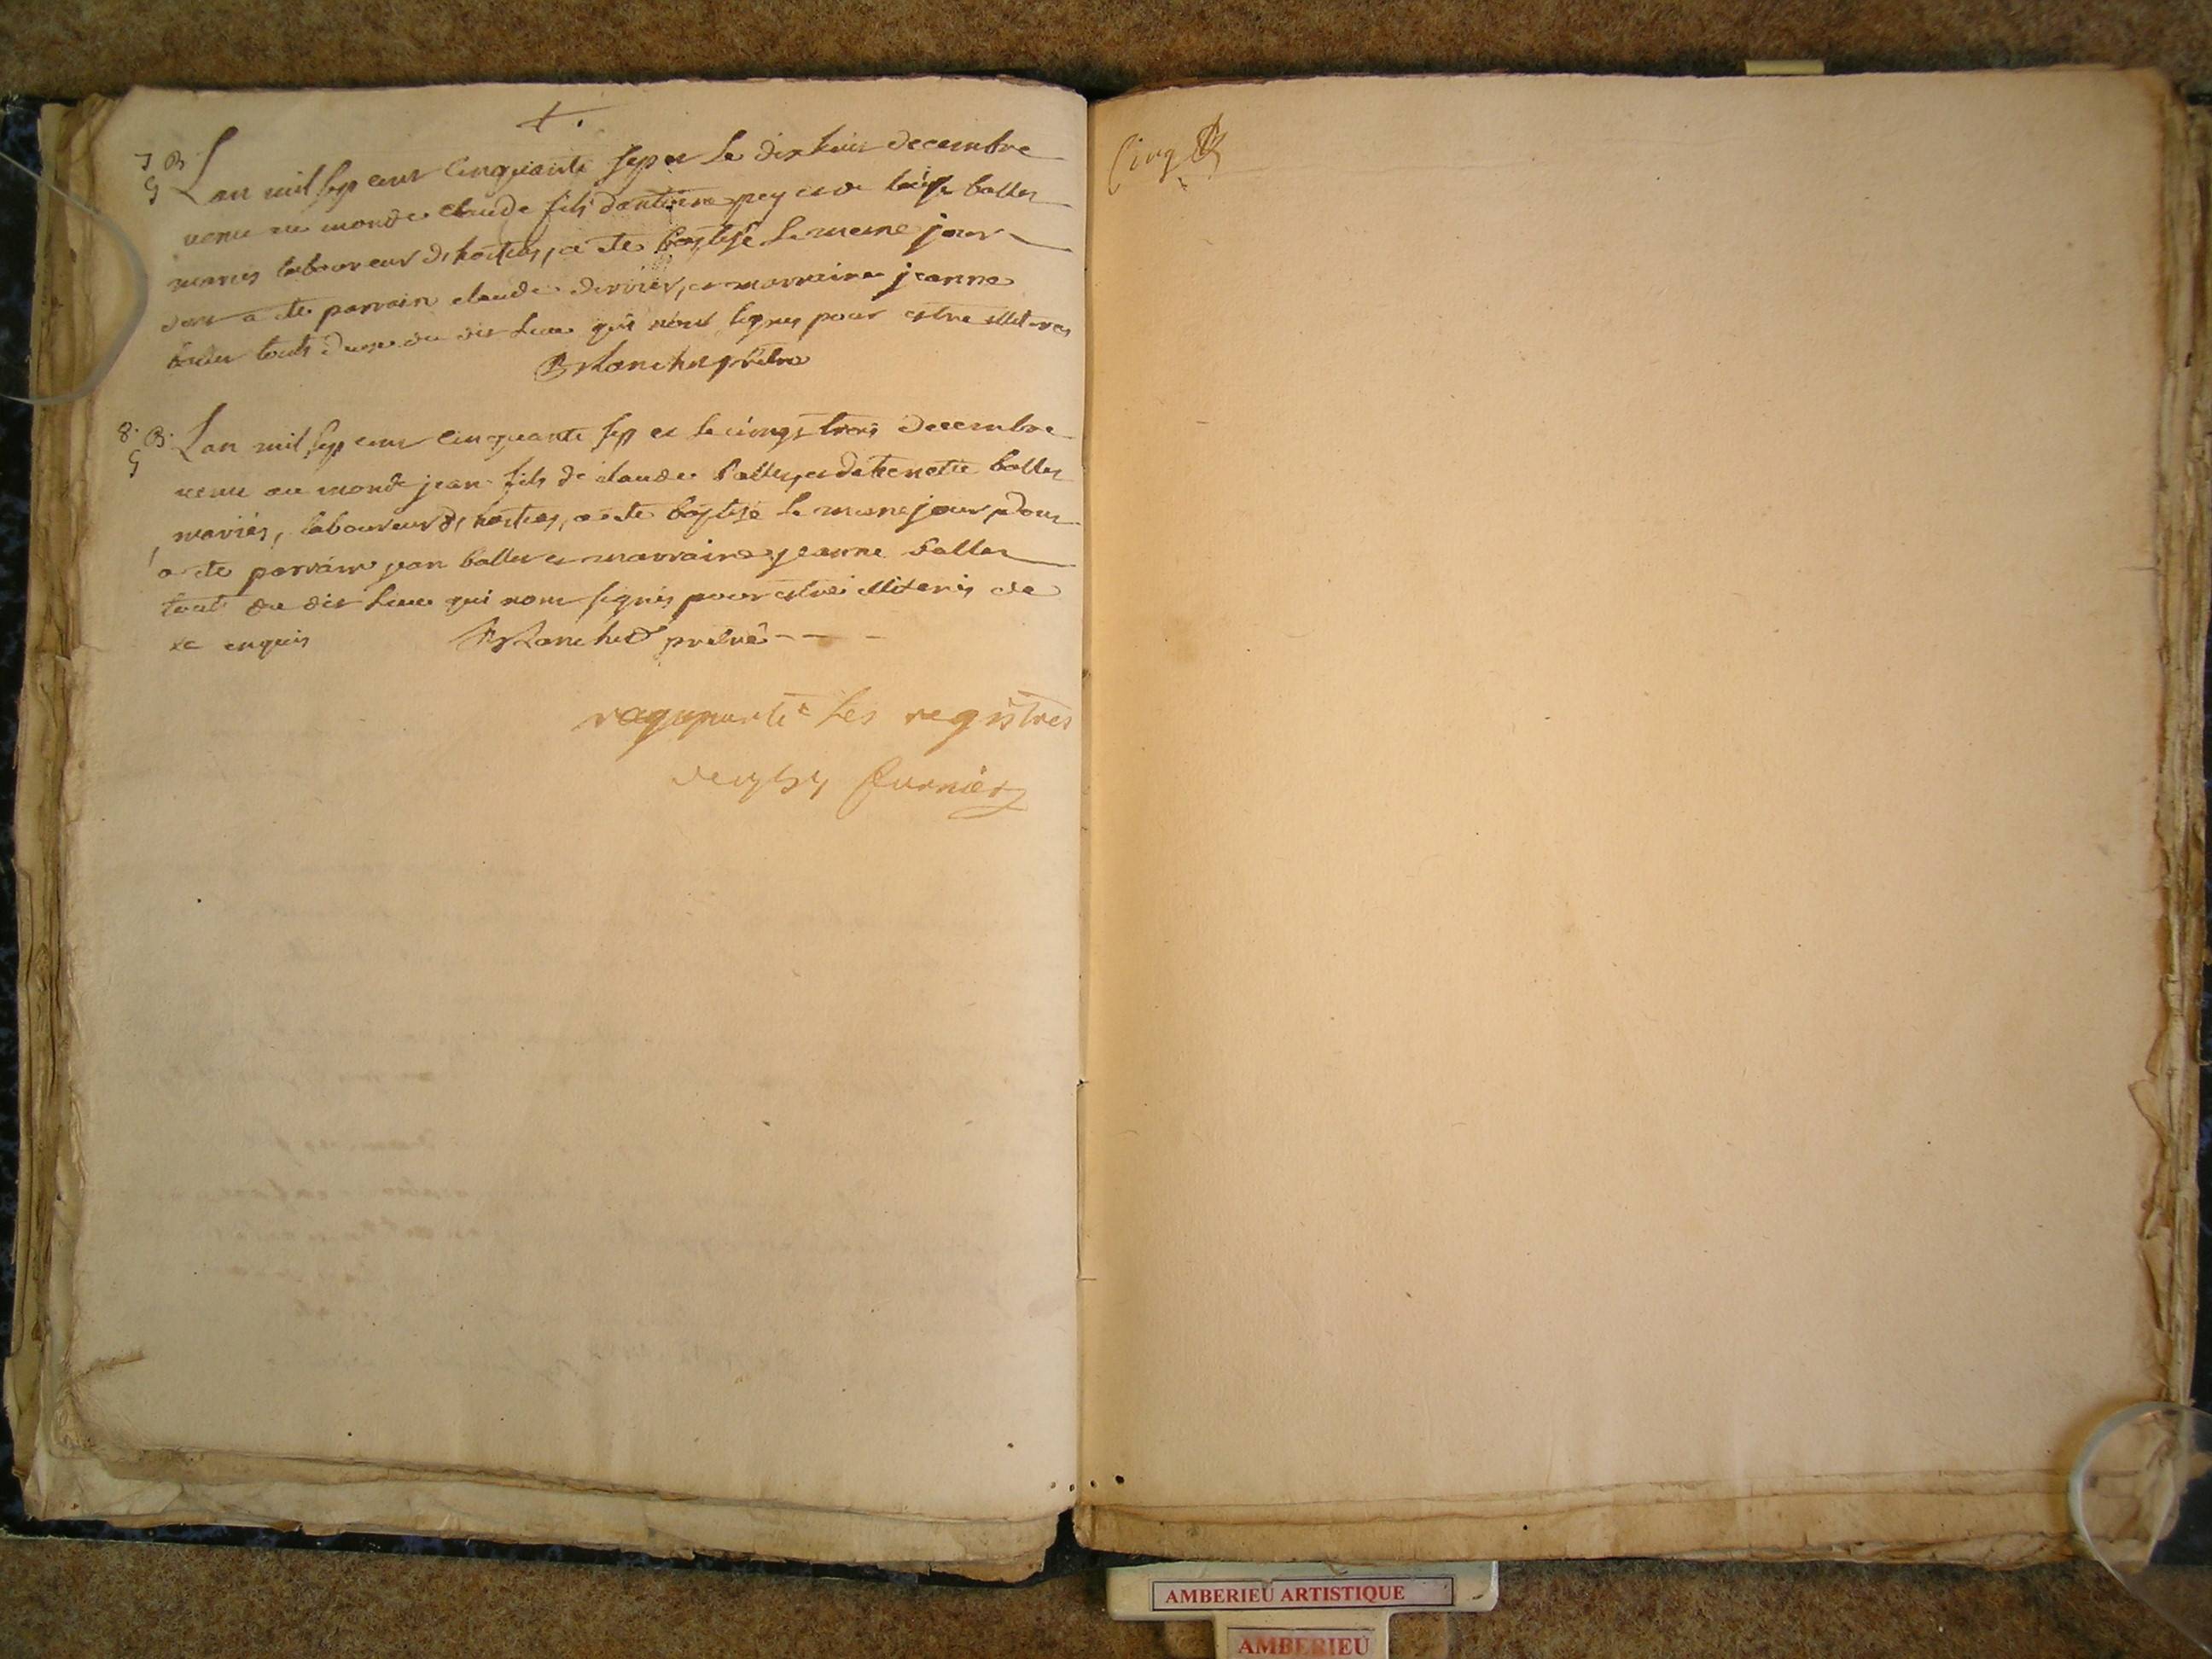 7 B
G
Lan mil sep cent cinquante sep et le dix huit decembre
venu au monde claude fils dantoine pey et de loüise ballet
mariés laboureur d hostias, a ete baptisé le meme jour
dont a ete parrain claude et marraine jeanne
ballet touts deux du dit lieu qui nont signes pour estre illiteres
Blanchet prêtre
8. B.
G
Lan mil sep cent cinquante sep et le vingt trois decembre
venu au monde jean fils de claude ballet, et de benoite ballet
mariés, laboureur d hostias, a ete baptisé le meme jour, dont
a ete parrain jean ballet et marraine jeanne ballet
touts du dit lieu qui nont signés pour estre illiterés de
ce enquis Blanchet prêtre
rapporté les registres
furnier
Cinq
AMBERIEU ARTISTIQUE
AMBERIEU